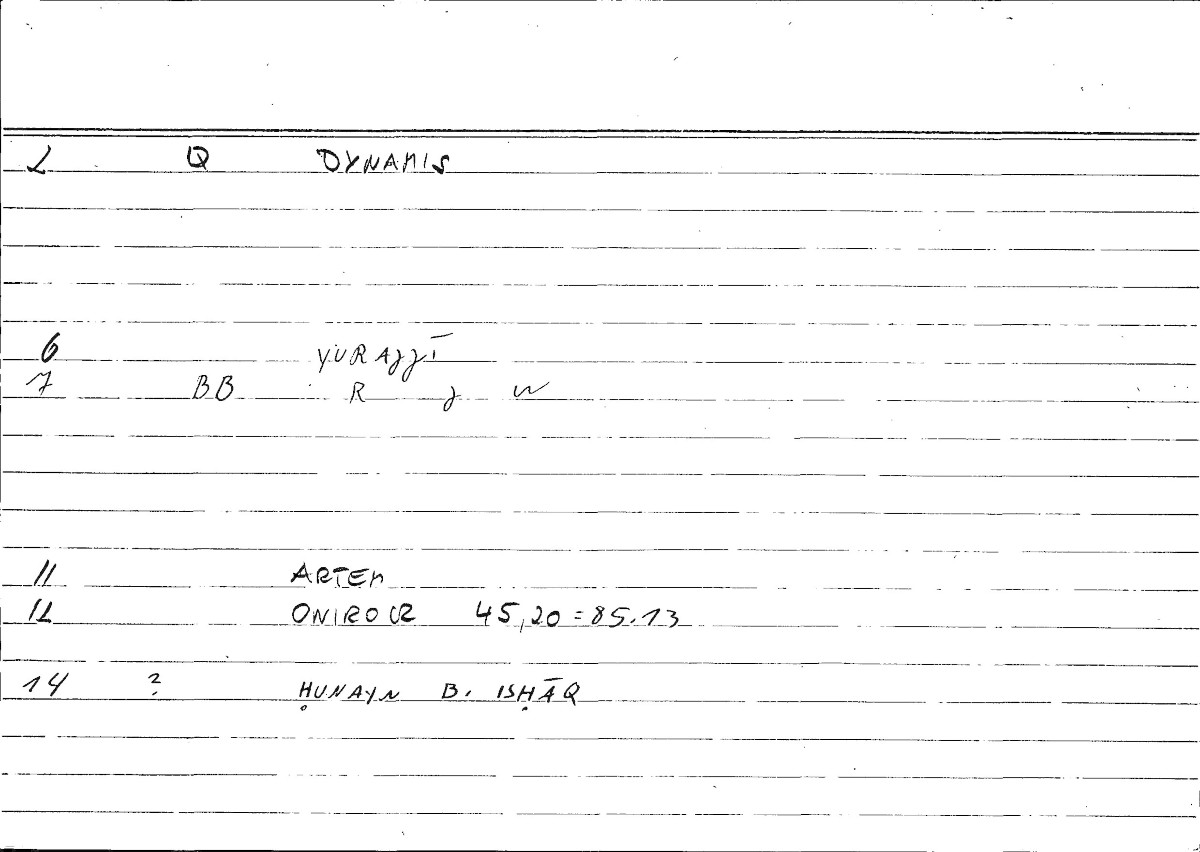 2 Q DYNAMIS
6 YURAJJĪ
7 BB R J W
11 ARTEM
12 ONIROCR 45,20=85.13
14 ? ḤUNAYN B. ISḤĀQ